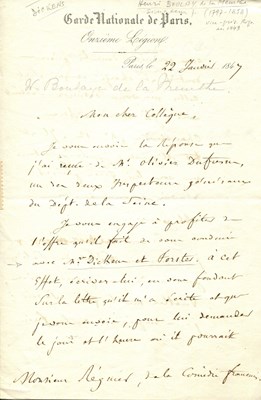 DICKENS
Henri Boulay de la Meurthe
Garde Nationale de Paris.
Onzième Légion
Paris, le 22 Janvier 1847
Boulay de la Meurthe
Mon cher Collègue,
Je vous envoie la réponse que
j'ai reçue de Mr. Olivier Dufresne,
un des deux Inspecteurs généraux
du Dépt. de la Seine.
Je vous engage à profiter de
l'offre qu'il fait de vous conduire
avec Mr Dickens et Forster. à cet
effet, écrivez-lui, en vous fondant
sur la lettre qu'il m'a écrite et que
je vous envoie, pour lui demander
le jour et l'heure où il pourrait
Monsieur Régnier, de la Comédie française